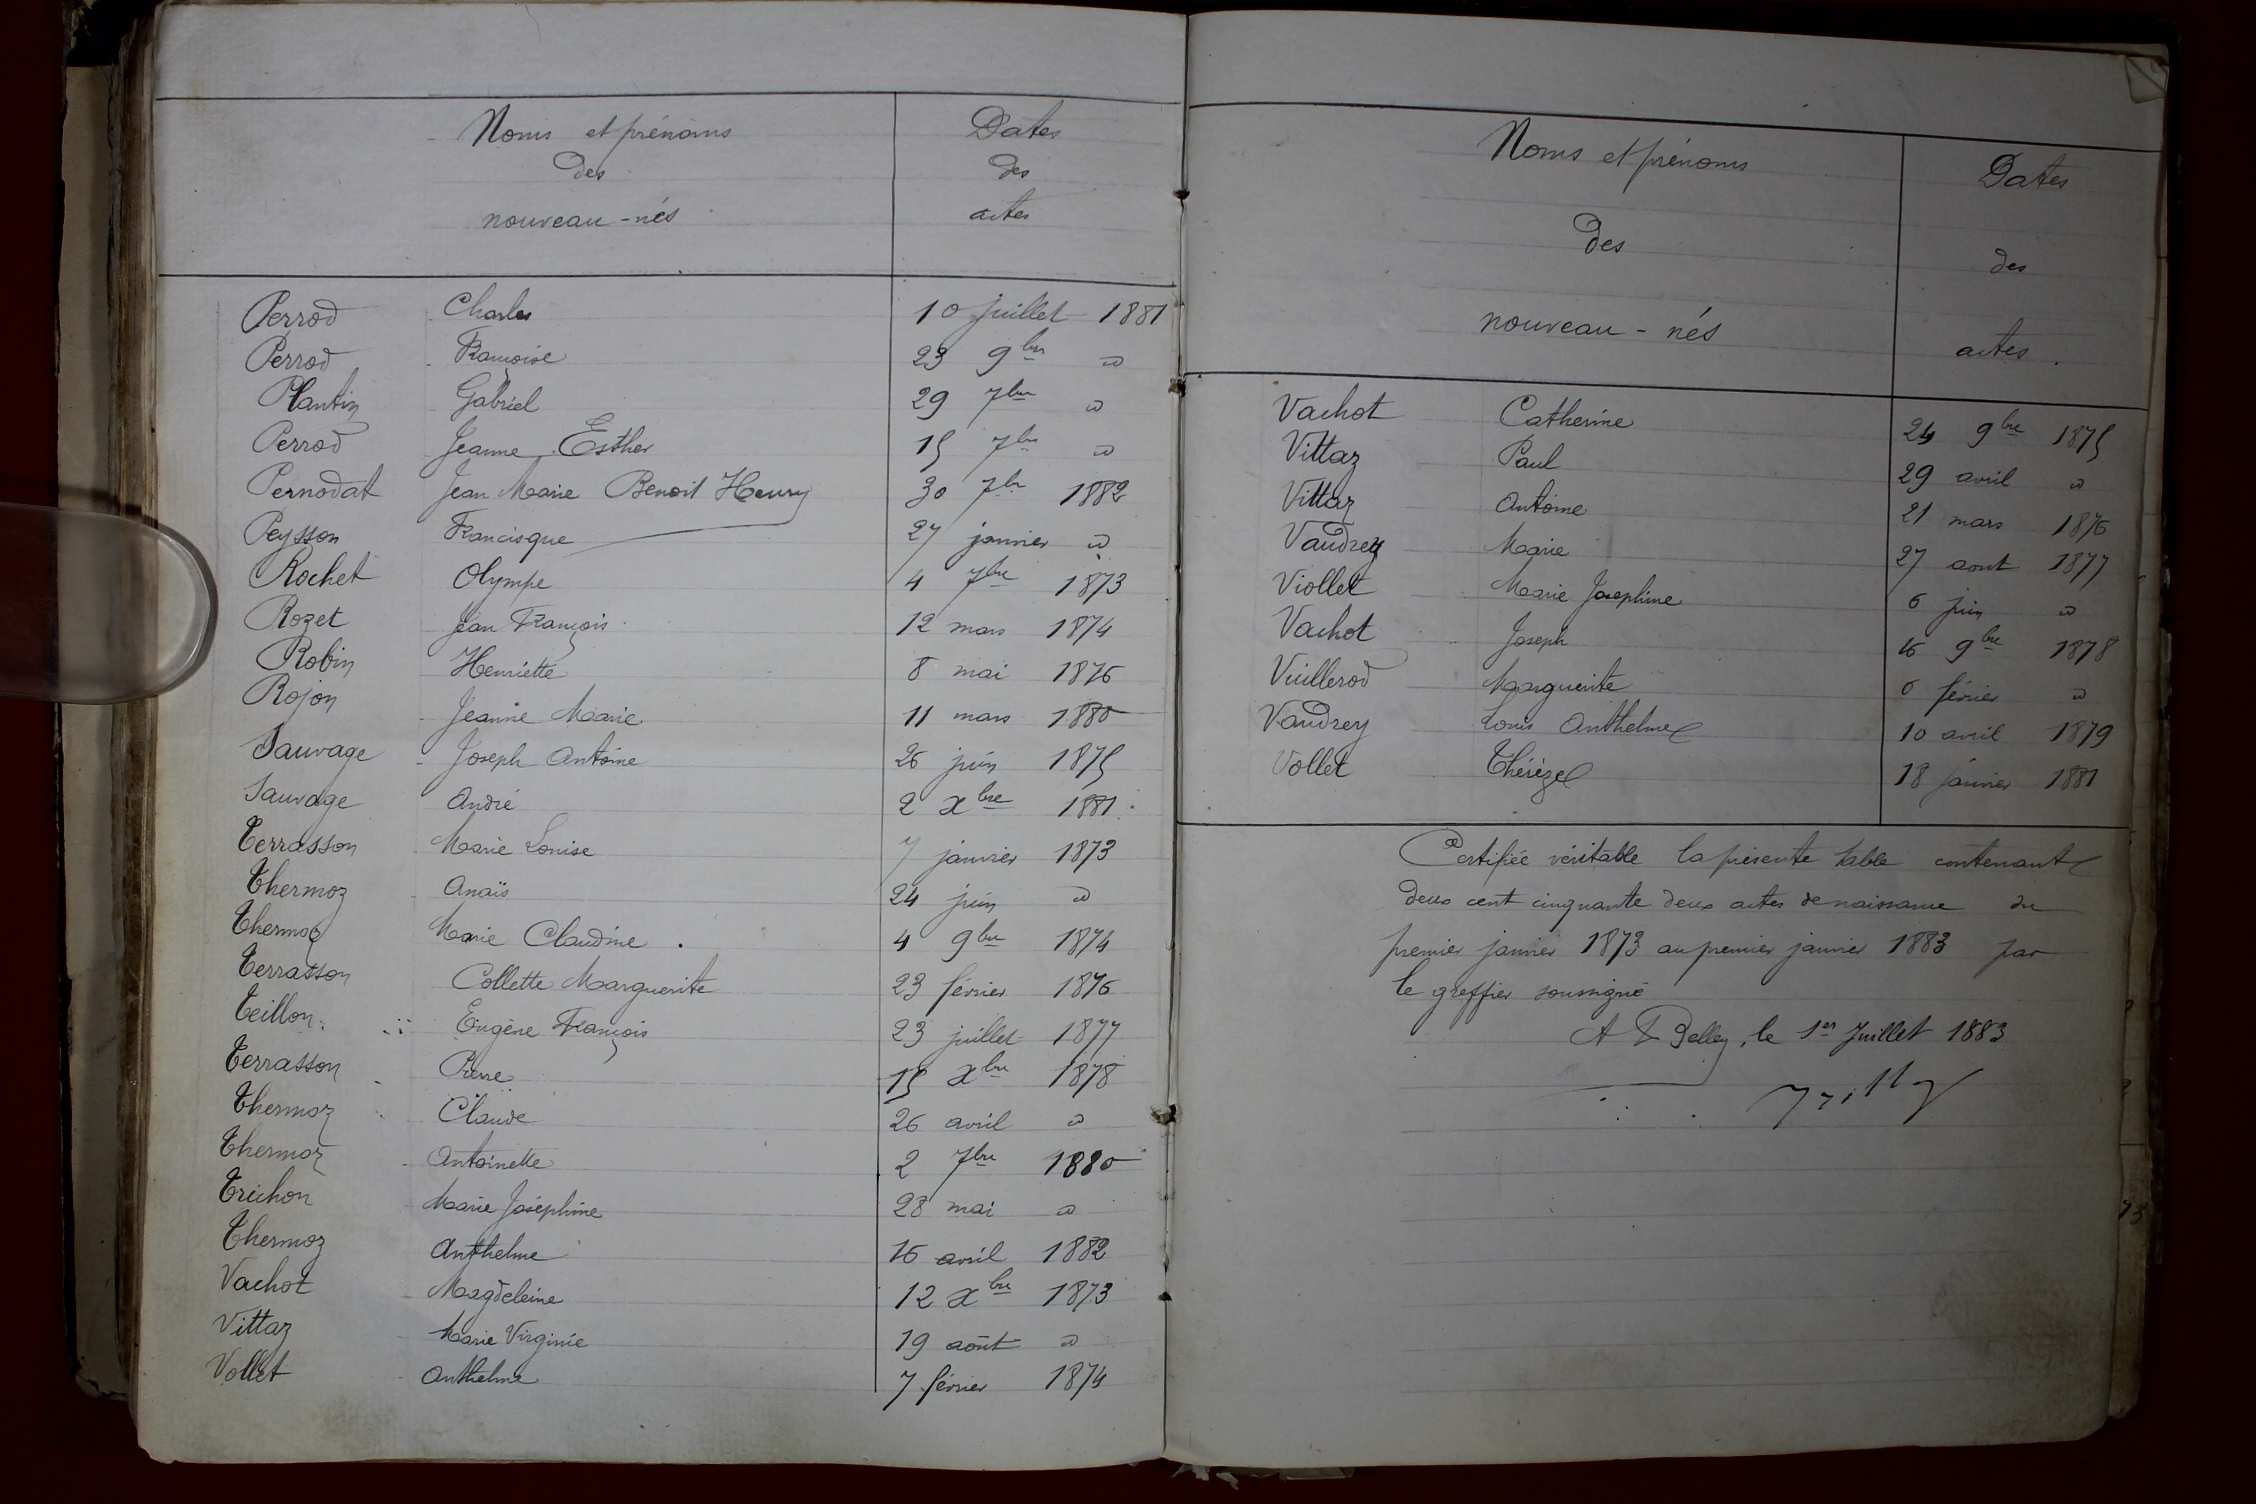 Noms et prénoms
des
nouveau-nés
Dates
des
actes
Perrod Charles 10 juillet 1881
Perrod Françoise 23 9bre d
Plantin Gabriel 29 7bre d
Perrod Jeanne Esther 15 7bre d
Pernodat Jean Marie Benoit Henry 30 7bre 1882
Peysson Francisque 27 janvier d
Rochet Olympe 4 7bre 1873
Rozet Jean François 12 mars 1874
Robin Henriette 8 mai 1876
Rojon Jeanne Marie 11 mars 1880
Sauvage Joseph Antoine 26 juin 1875
Sauvage André 2 xbre 1881
Terrasson Marie Louise 7 janvier 1873
Thermoz Anaïs 24 juin d
Thermoz Marie Claudine 4 9bre 1874
Terrasson Collette Marguerite 23 février 1876
Teillon Eugène François 23 juillet 1877
Terrasson Pierre 15 xbre 1878
Thermoz Claude 26 avril d
Thermoz Antoinette 2 7bre 1880
Trichon Marie Joséphine 28 mai d
Thermoz Anthelme 16 avril 1882
Vachot Magdeleine 12 xbre 1873
Vittaz Marie Virginie 19 août d
Vollet Anthelme 7 février 1874
Noms et prénoms
des
nouveau-nés
Dates
des
actes.
Vachot Catherine 24 9bre 1875
Vittaz Paul 29 avril d
Vittaz Antoine 21 mars 1876
Vaudrey Marie 27 aout 1877
Viollet Marie Josephine 6 juin d
Vachot Joseph 16 9bre 1878
Vuillerod Marguerite 6 février d
Vaudrey Louis Anthelme 10 avril 1879
Vollet Thérèze 18 janvier 1881
Certifiée véritable la présente table contenant
deux cent cinquante deux actes de naissance du
premier janvier 1873 au premier janvier 1883 par
le greffier soussigné
A Belley, le 1er Juillet 1883